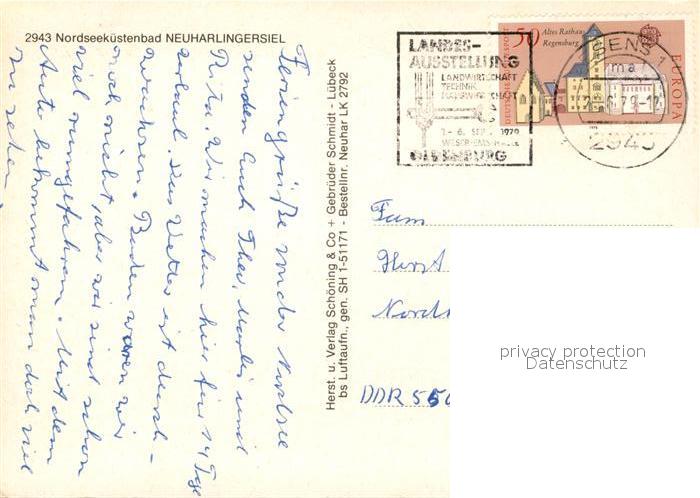 2943 Nordseeküstenbad NEUHARLINGERSIEL
Feriengrüße von der Nordsee
senden Euch Theo, und
Wir machen hier für 14 Tage
Urlaub. Das Wetter ist durch-
wachsen. Baden waren wir
noch nicht, aber wir sind schon
viel rumgefahren. Mit dem
Auto bekommt man doch viel
zu sehen.
Herst. u. Verlag Schöning & Co + Gebrüder Schmidt - Lübeck
bs Luftaufn., gen. SH 1-51171 - Bestellnr. Neuhar LK 2792
LANDES-
AUSSTELLUNG
LANDWIRTSCHAFT
TECHNIK
1.- 6. SEPT. 1979
WESER-EMS-HALLE
OLDENBURG
50
Altes Rathaus
Regensburg
DEUTSCHE BUNDESPOST
EUROPA
CEPT
ENS 1
ma
79-17
2943
Fam
Horst
Nord
DDR 5
privacy protection
Datenschutz